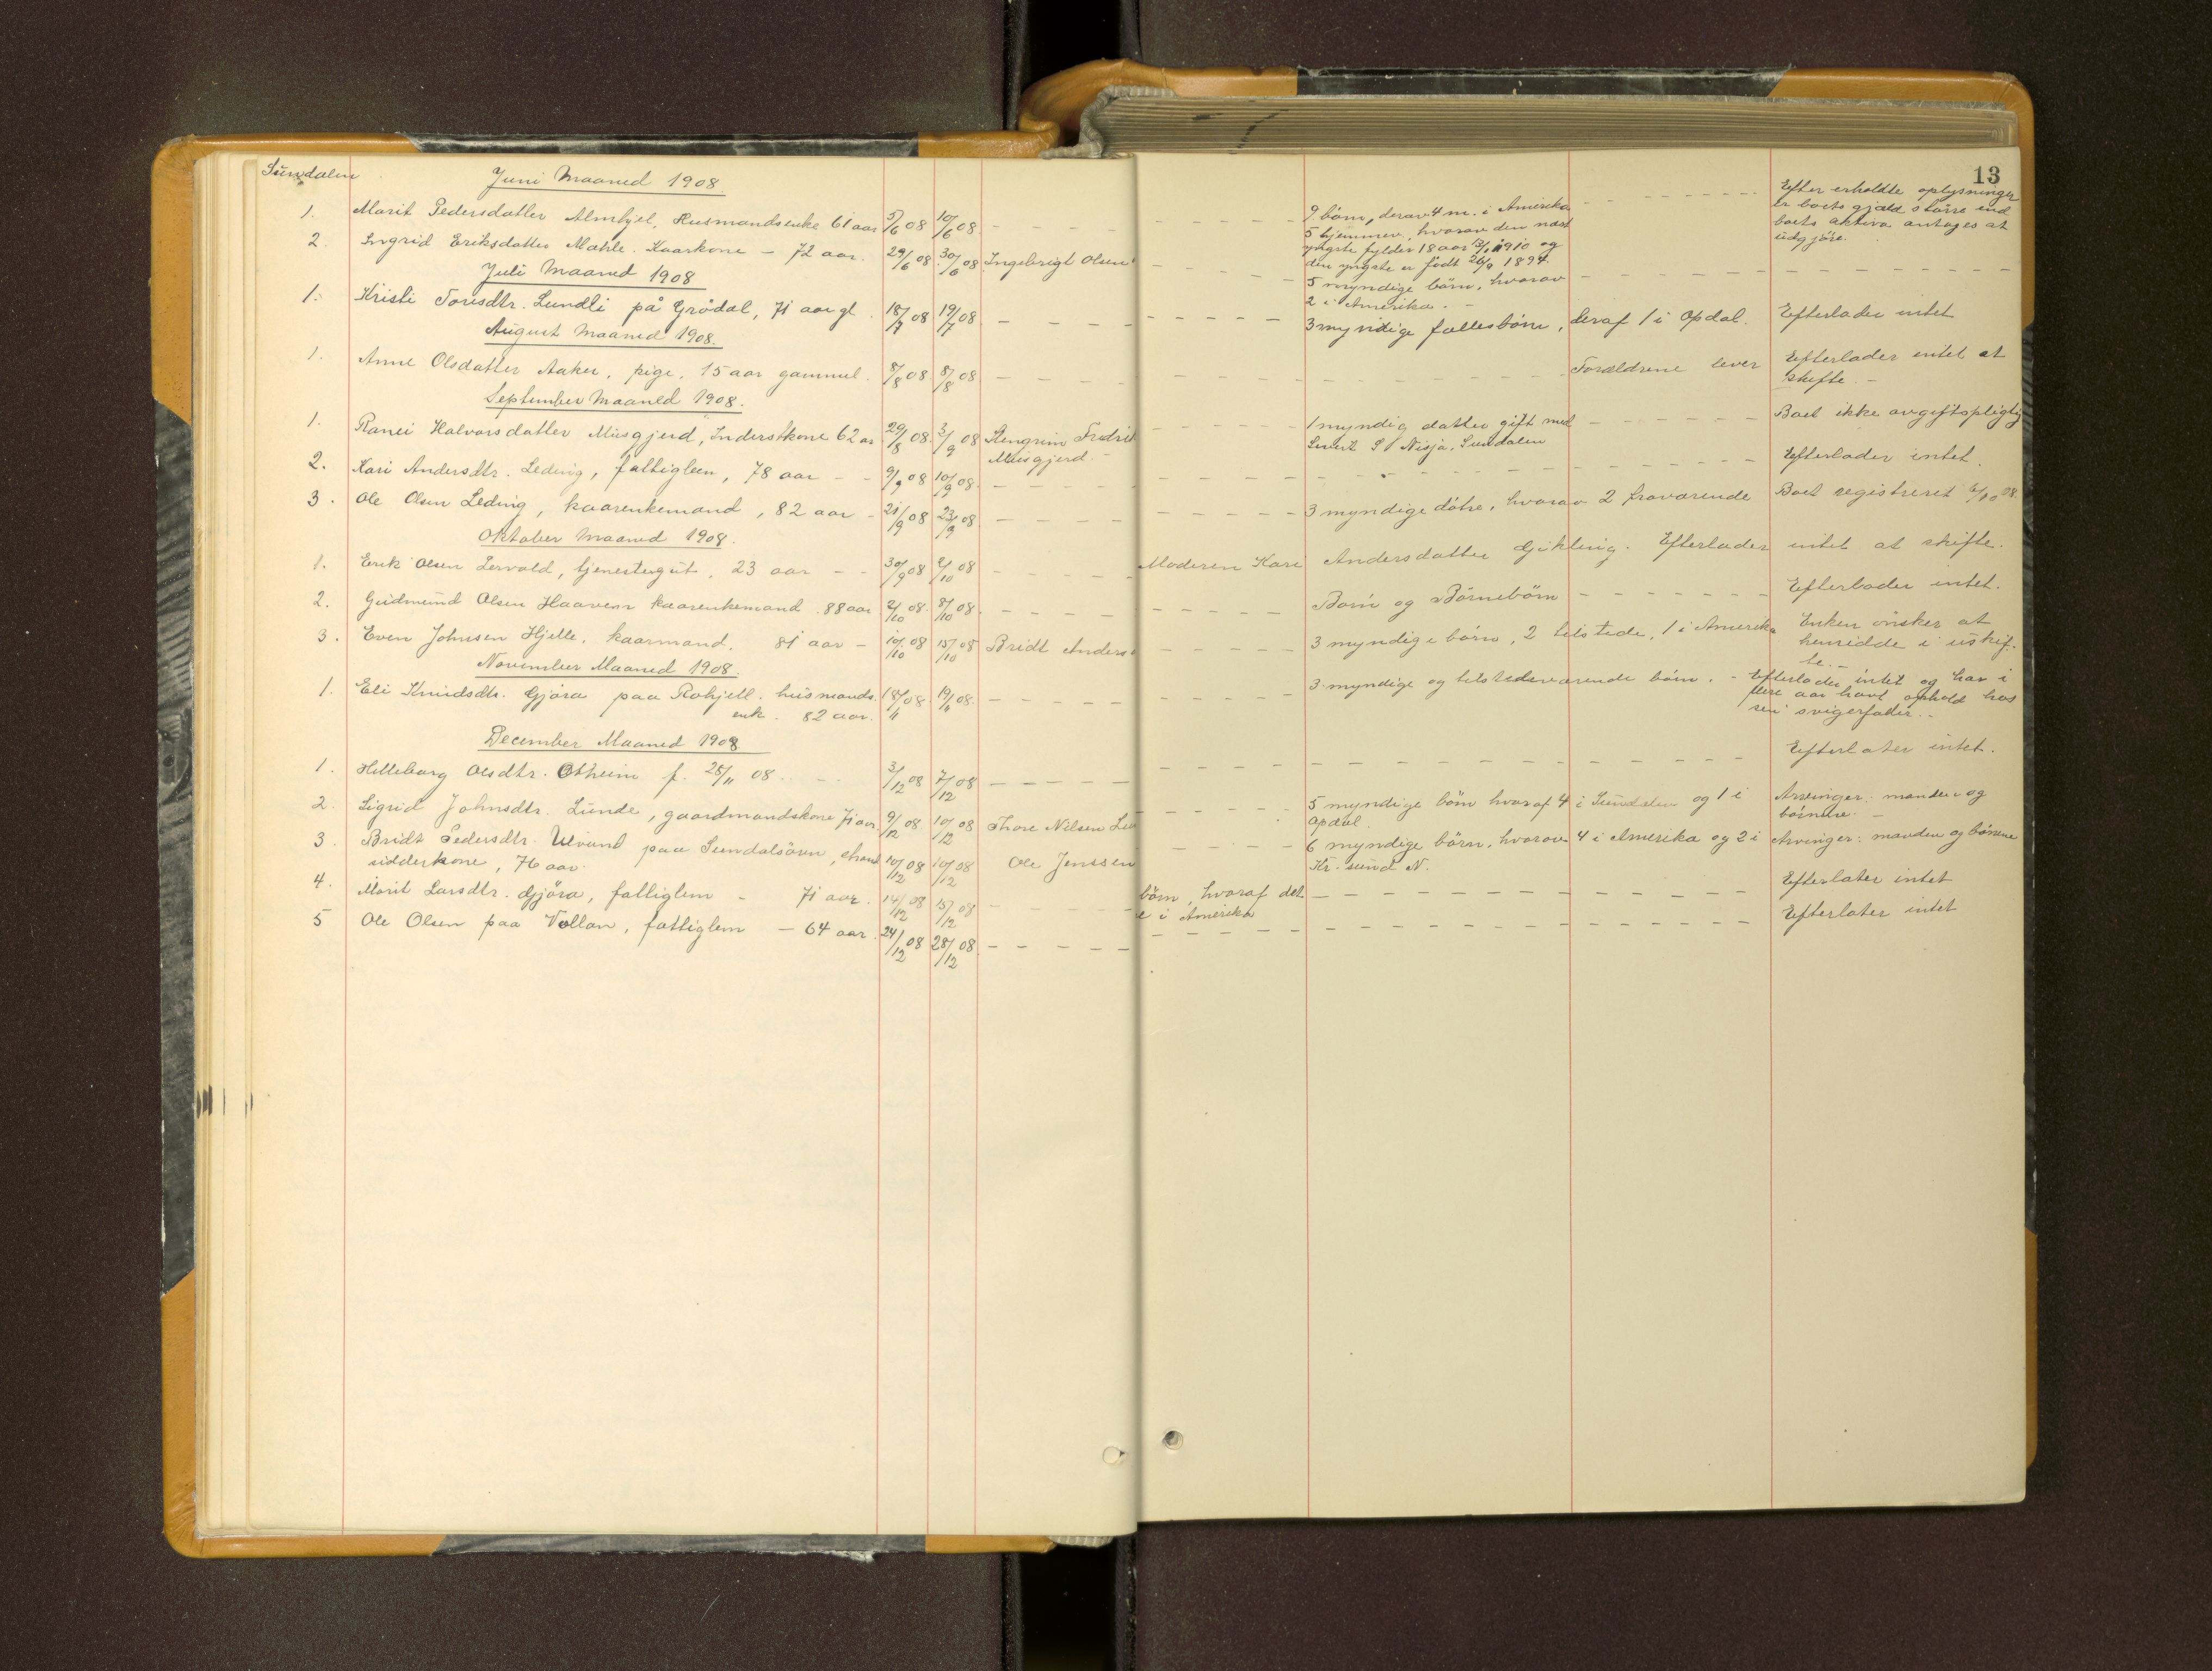 Sundalen
Juni Maaned 1908.
13
1. Marit Pedersdatter Almhjel, Husmandsenke 61 aar 5/6 08 10/6 08. 9 børn, derav 4 m. i Amerika Efter erholdte oplysninger
5 hjemmev, hvorav den næst er boets gjæld større end
yngste fylder 18 aar 13/1 1910 og boets aktiva antages at
den yngste er født 26/9 1894. udgjøre.
2. Ingrid Eriksdatter Mæhle. Kaarkone – 72 aar. 29/6 08 30/6 08 Ingebrigt Olsen 5 myndige børn, hvorav
2 i Amerika.
Juli Maaned 1908
1. Kristi Toresdtr. Lundli på Grødal, 71 aar gl. 18/7 08 19/7 08 3 myndige fællesbørn, deraf 1 i Opdal. Efterlader intet
August Maaned 1908.
1. Anne Olsdatter Aaker, pige, 15 aar gammel. 8/8 08 8/8 08 Forældrene lever Efterlader intet at
skifte. –
September Maaned 1908.
1. Ranei Halvorsdatter Musgjerd, Inderstkone 62 aar 29/8 08 3/9 08 Stengrim Fredrik 1 myndig datter gift med Boet ikke avgiftspligtig
Musgjerd. – Sivert S. Nisja, Sundalen
2. Kari Andersdtr. Leding, fattiglem, 78 aar – 9/9 08 10/9 08. Efterlader intet.
3. Ole Olsen Leding, kaarenkemand, 82 aar – 21/9 08 23/9 08 3 myndige døtre, hvorav 2 fraværende Boet registreret 6/10 08.
Oktober Maaned 1908.
1. Erik Olsen Lervold, tjenestegut, 23 aar – – 30/9 08 2/10 08 Moderen Kari Andersdatter Gjikling. Efterlader intet at skifte.
2. Gudmund Olsen Haaven kaarenkemand. 88 aar 2/10 08. 8/10 08. Børn og Børnebørn Efterlader intet.
3. Even Johnsen Hjelle, kaarmand, 81 aar – 10/10 08 15/10 08 Bridt Anders 3 myndige børn, 2 tilstede, 1 i Amerika Enken ønsker at
hensidde i uskif-
te. –
November Maaned 1908.
1. Eli Knudsdtr. Gjøra paa Rohjell. husmands 18/11 08 19/11 08. 3 myndige og tilstedeværende børn. – Efterlader intet og har i
enk. 82 aar. flere aar havt ophold hos
sin svigerfader. –
December Maaned 1908
1. Hilleborg Olsdtr. Otheim f. 25/11 08 3/12 08 7/12 08 Efterlater intet.
2. Sigrid Johnsdtr. Lunde, gaardmandskone 71 aar 9/12 08 10/12 08 Thore Nilsen 5 myndige børn hvoraf 4 i Sundalen og 1 i Arvinger: manden og
Opdal. børnene. –
3. Bridt Pedersdtr. Ulvund paa Sundalsøren,
sidderkone, 76 aar. 10/12 08 10/12 08 Ole Jenssen 6 myndige børn, hvorav 4 i Amerika og 2 i Arvinger: manden og børnene
Kr. sund N.
4. Marit Larsdtr. Gjøra, fattiglem – 71 aar. 14/12 08 15/12 08 børn, hvoraf det Efterlater intet
e i Amerika
5 Ole Olsen paa Vollan, fattiglem – 64 aar. 24/12 08 28/12 08 Efterlater intet